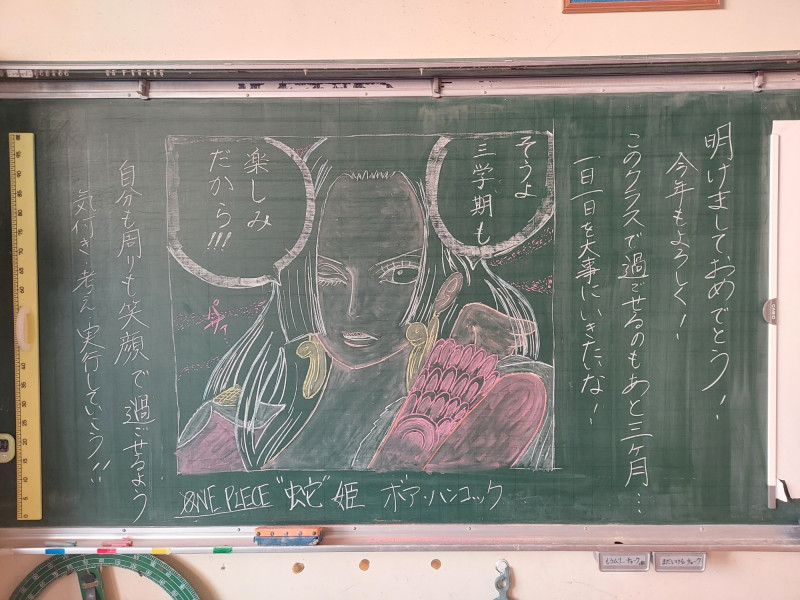 明けましておめでとう!
今年もよろしく!
このクラスで過ごせるのもあと三ヶ月…
一日一日を大事にいきたいな!
そうよ
三学期も
楽しみ
だから!!!
自分も周りも笑顔で過ごせるよう
気付き・考え・実行していこう!!
ONE PIECE "蛇"姫 ボア・ハンコック